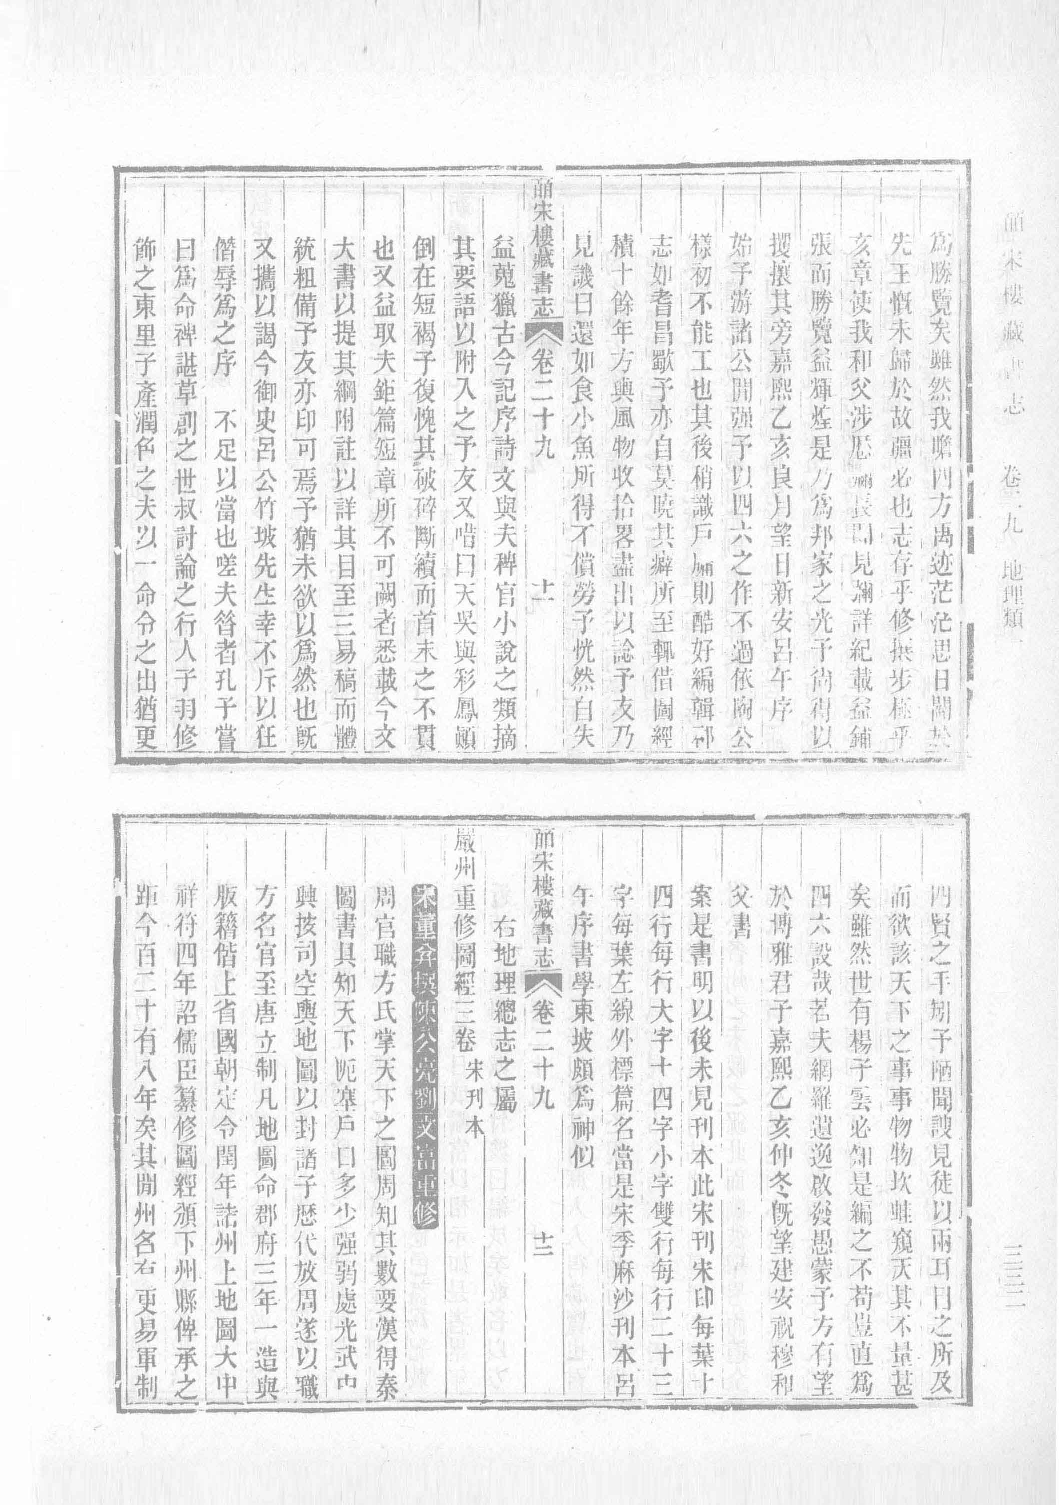 皕宋樓藏書志 卷二九 地理類一
三三二
爲勝覽矣雖然我瞻四方禹迹茫茫思日闢於
先王慨未歸於故疆必也志存乎修攘步極乎
亥章使我和父涉歷彌長聞見彌詳紀載益鋪
張而勝覽益輝煌是乃爲邦家之光予尙得以
攫攘其旁嘉熙乙亥良月望日新安呂午序
始予游諸公間强予以四六之作不過依陶公
樣初不能工也其後稍識戶牖則酷好編輯郡
志如耆昌歜予亦自莫曉其癖所至輒借圖經
積十餘年方輿風物收拾畧盡出以諗予友乃
見譏曰還如食小魚所得不償勞予恍然自失
皕宋樓藏書志 卷二十九 十一
益蒐獵古今記序詩文與夫稗官小說之類摘
其要語以附入之予友又唶曰天吳與彩鳳顚
倒在短褐予復愧其破碎斷續而首末之不貫
也又益取夫鉅篇短章所不可闕者悉載今文
大書以提其綱附註以詳其目至三易稿而體
統粗備予友亦印可焉予猶未欲以爲然也旣
又攜以謁今御史呂公竹坡先生幸不斥以狂
僭辱爲之序 不足以當也嗟夫昝者孔子嘗
曰爲命裨諶草創之世叔討論之行人子羽修
飾之東里子產潤色之夫以一命令之出猶更
四賢之手矧予陋聞謏見徒以兩耳目之所及
而欲該天下之事事物物坎蛙窺天其不量甚
矣雖然世有楊子雲必知是編之不苟豈直爲
四六設哉若夫網羅遺逸啟發愚蒙予方有望
於博雅君子嘉熙乙亥仲冬旣望建安祝穆和
父書
案是書明以後未見刊本此宋刊宋印每葉十
四行每行大字十四字小字雙行每行二十三
字每葉左線外標篇名當是宋季麻沙刊本呂
午序書學東坡頗爲神似
皕宋樓藏書志 卷二十九 十二
右地理總志之屬
嚴州重修圖經三卷 宋刊本
宋董弅撰陳公亮劉文富重修
周官職方氏掌天下之圖周知其數要漢得秦
圖書具知天下阨塞戶口多少强弱處光武中
興按司空輿地圖以封諸子歷代放周遂以職
方名官至唐立制凡地圖命郡府三年一造與
版籍偕上省國朝定令閏年諸州上地圖大中
祥符四年詔儒臣纂修圖經頒下州縣俾承之
距今百二十有八年矣其閒州名右更易軍制